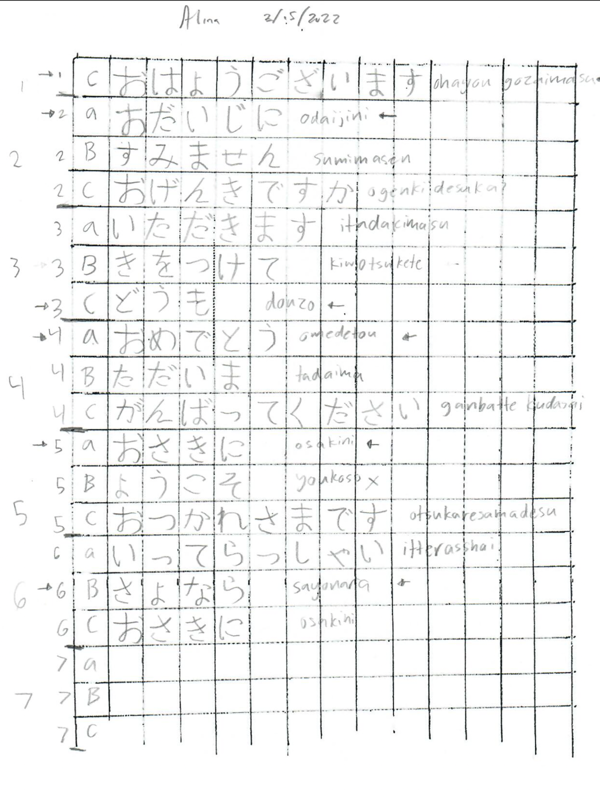 Alina 2/15/2022
1 →1 C おはようございます ohayou gozaimasu
→2 a おだいじに odaijini ←
2 2 B すみません sumimasen
2 C おげんきですか ogenki desuka?
3 a いただきます itadakimasu
3 3 B きをつけて kiwotsukete
→3 C どうも douzo ←
→4 a おめでとう omedetou ←
4 4 B ただいま tadaima
4 C がんばってください ganbatte kudasai
→5 a おさきに osakini ←
5 B ようこそ youkoso x
5 5 C おつかれさまです otsukaresamadesu
6 a いってらっしゃい itterasshai
6 →6 B さよなら sayonara ←
6 C おさきに osakini
7 a
7 7 B
7 C